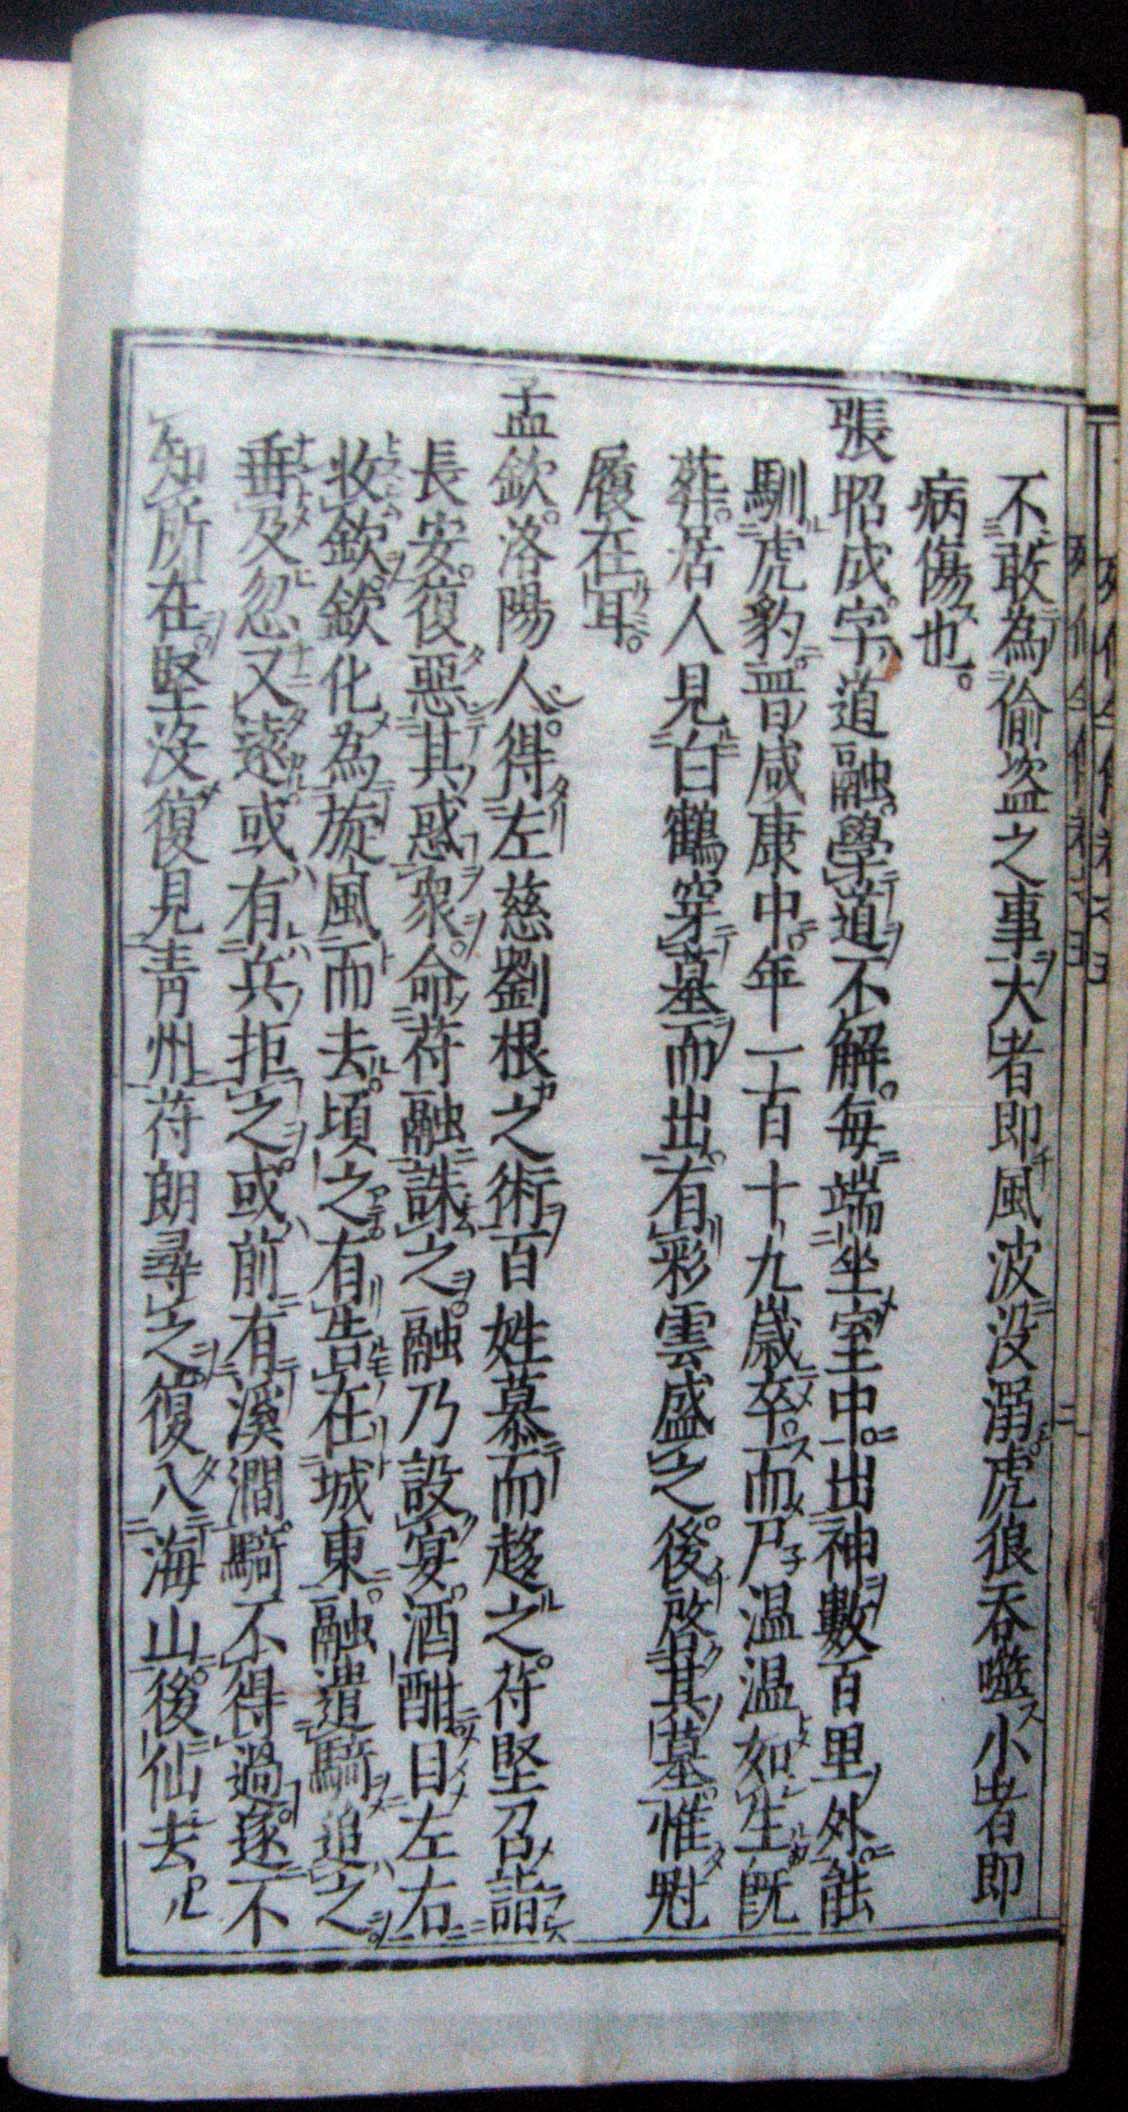 不敢為偷盜之事大者即風波没溺虎狼吞噬小者即
病傷也。
張昭成字道融。學道不解。每端坐室中。出神數百里外。能
馴虎豹。晉咸康中。年一百十九歲卒。而尸温温如生。既
葬。居人見白鶴穿墓而出。有彩雲盛之。後啓其墓。惟劒
履在耳。
孟欽。洛陽人。得左慈劉根之術。百姓慕而趍之。苻堅召詣
長安。復惡其惑衆。命苻融誅之。融乃設宴。酒酣目左右
收欽。欽化為旋風而去。頃之。有告在城東。融遣騎追之。
垂及忽又遠。或有兵拒之。或前有溪澗。騎不得過。遂不
知所在。堅没復見青州。苻朗尋之。復入海山。後仙去